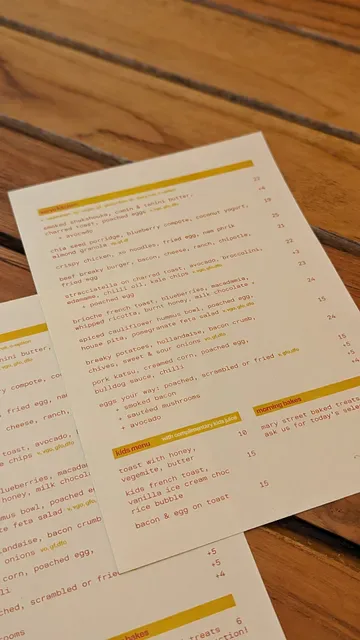 smoked shakshouka, cumin & tahini butter,
charred toast, poached eggs
+ avocado
chia seed porridge, blueberry compote, coconut yogurt,
almond granola
crispy chicken, xo noodles, fried egg, nam phrik
beef breaky burger, bacon, cheese, ranch, chipotle,
fried egg
stracciatella on charred toast, avocado, broccolini,
edamame, chilli oil, kale chips
+ poached egg
brioche french toast, blueberries, macadamia,
whipped ricotta, burnt honey, milk chocolate
spiced cauliflower humous bowl, poached egg,
house pita, pomegranate feta salad
breaky potatoes, hollandaise, bacon crumb,
chives, sweet & sour onions
24
pork katsu, creamed corn, poached egg,
bulldog sauce, chilli
24
eggs your way: poached, scrambled or fried
15
+ smoked bacon
+5
+ sautéed mushrooms
+5
+ avocado
+4
kids menu with complimentary kids juice
toast with honey,
vegemite, butter
10
kids french toast,
vanilla ice cream choc
rice bubble
15
bacon & egg on toast
15
morning bakes
mary street baked treats
ask us for today's
hini butter,
compote, co
fried egg, na
cheese, ranch,
toast, avocado,
chips
blueberries, macada
honey, milk chocol
mus bowl, poached e
te feta salad
landaise, bacon crumb
onions
corn, poached egg,
li
ched, scrambled or fried
+5
+5
+4
bakes
treats
6